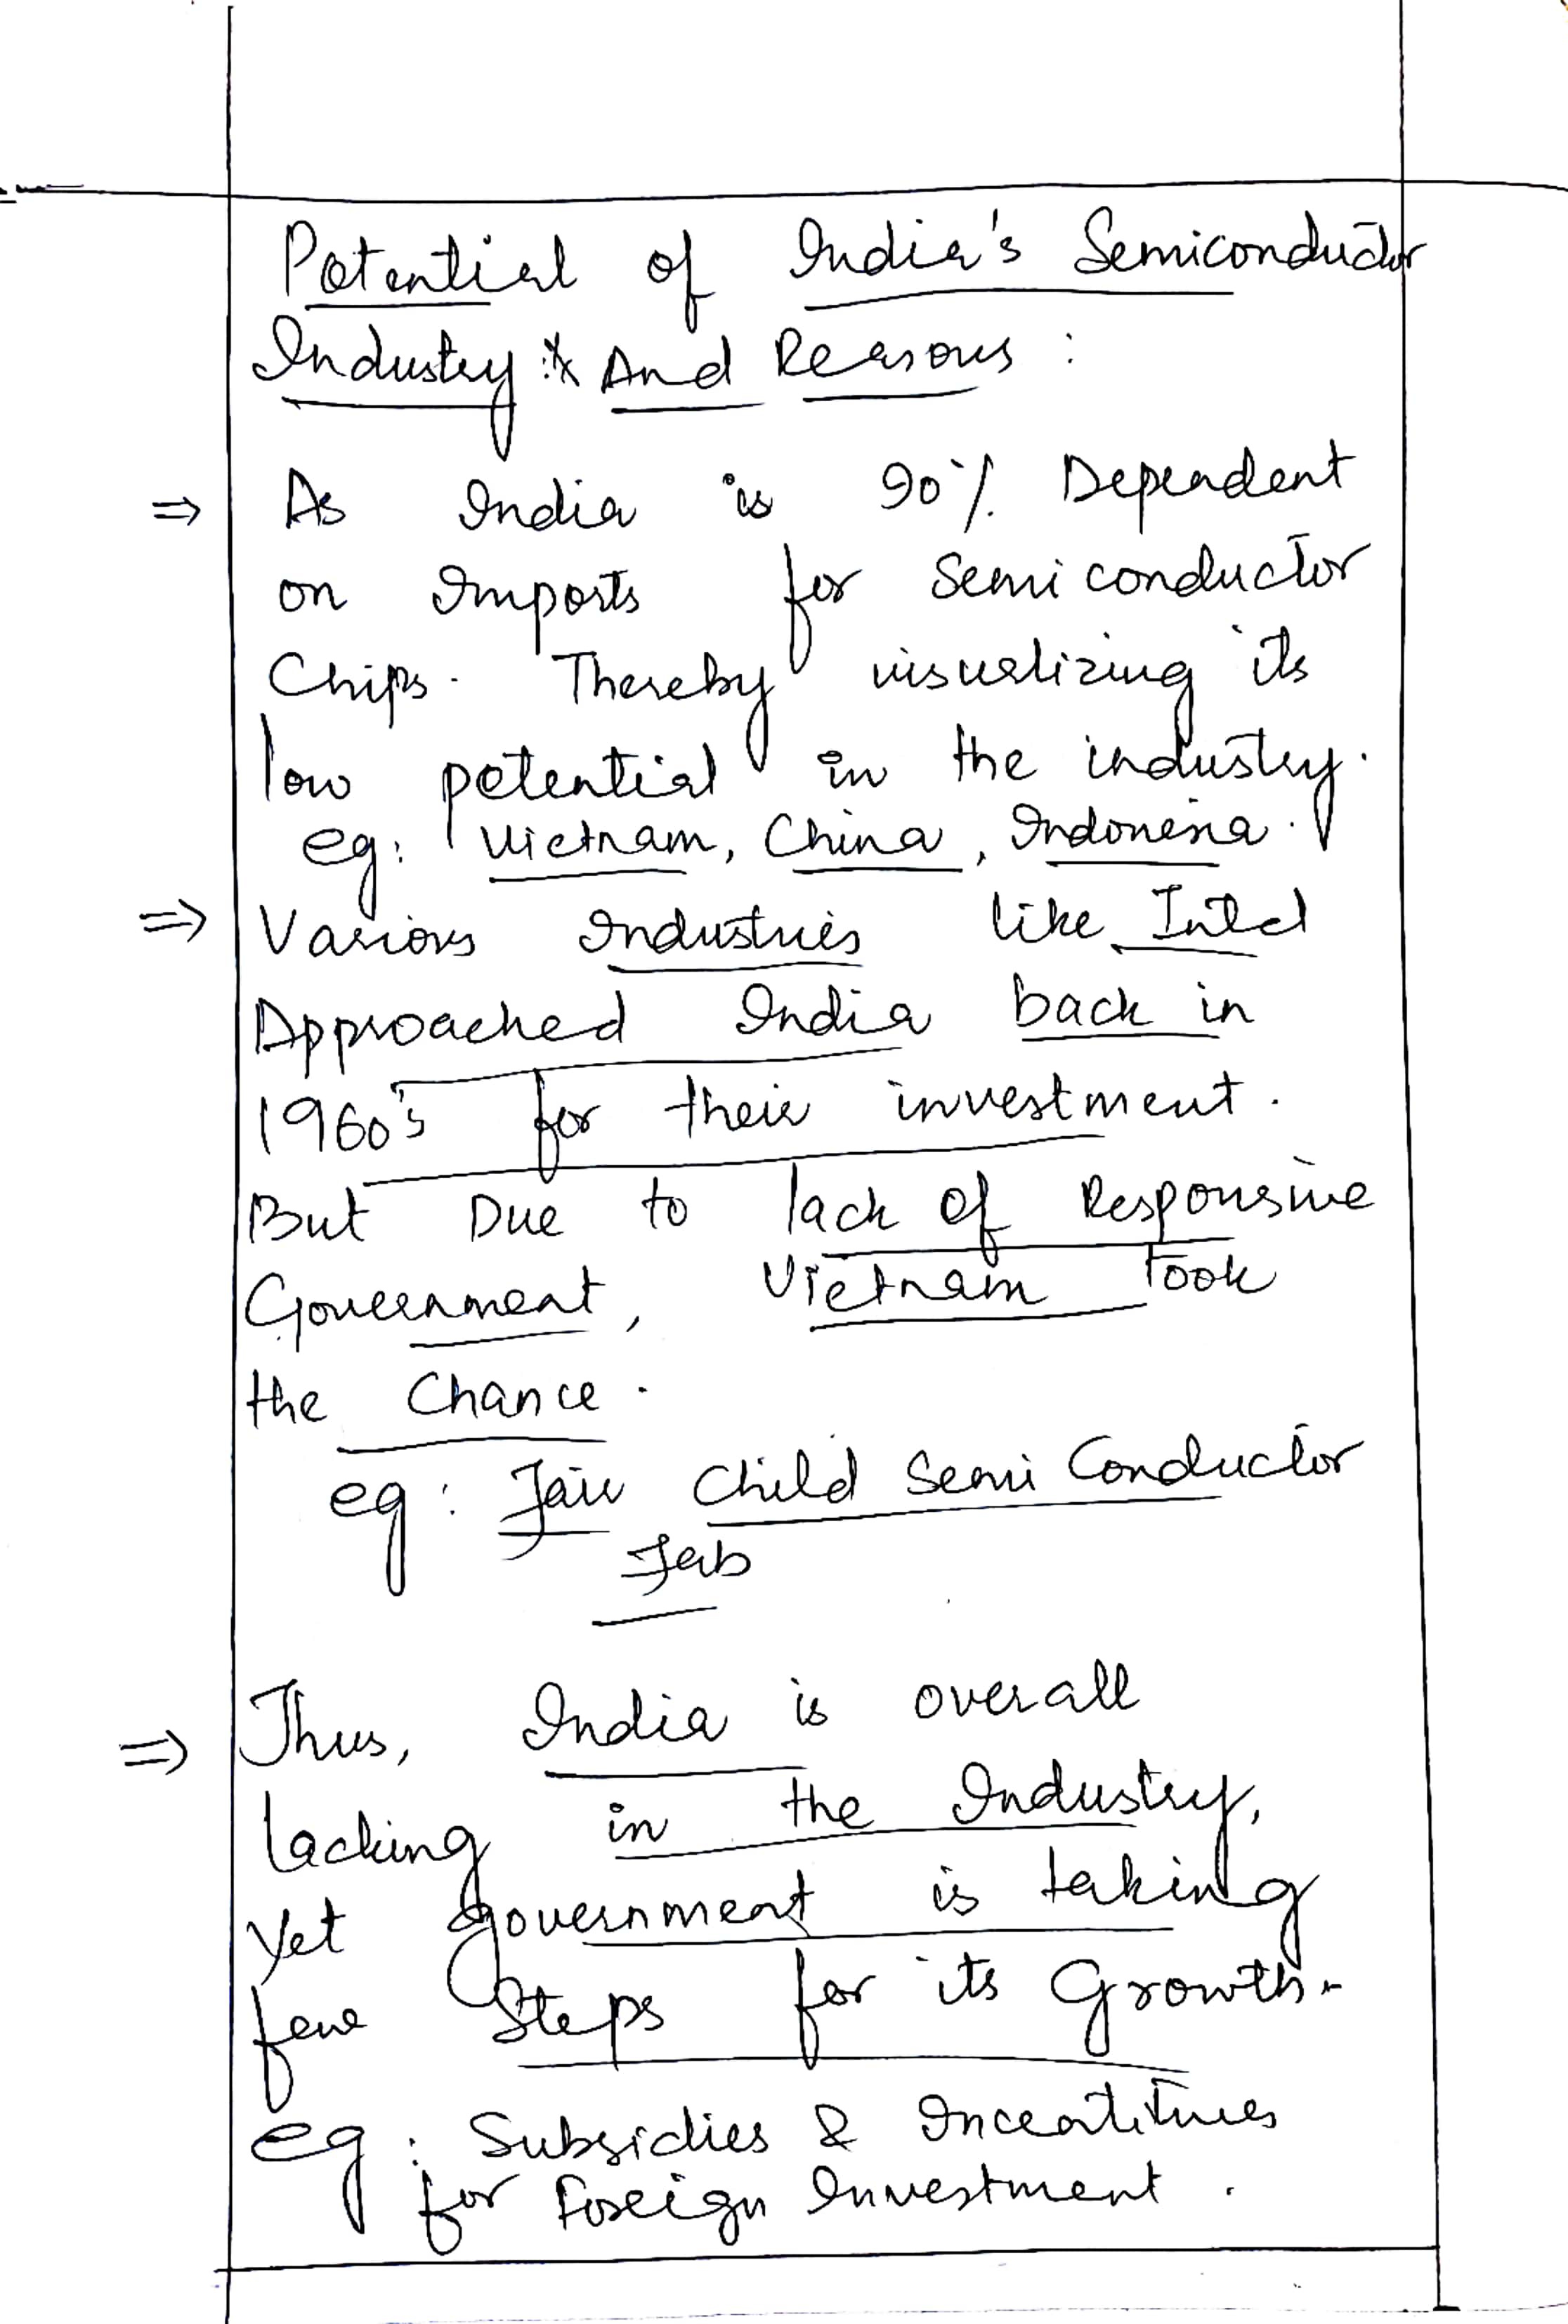 Potential of India's Semiconductor
Industry : And Reasons :
⇒ As India is 90% Dependent
on Imports for Semi conductor
Chips. Thereby visualizing its
low potential in the industry.
eg: Vietnam, China, Indonesia.
⇒ Various Industries like Intel
Approached India back in
1960's for their investment.
But Due to lack of Responsive
Government, Vietnam Took
the Chance.
eg: Fair Child Semi Conductor
Fab
⇒ Thus, India is overall
lacking in the Industry,
Yet government is taking
few Steps for its Growth.
eg: Subsidies & Incentitives
for Foreign Investment.